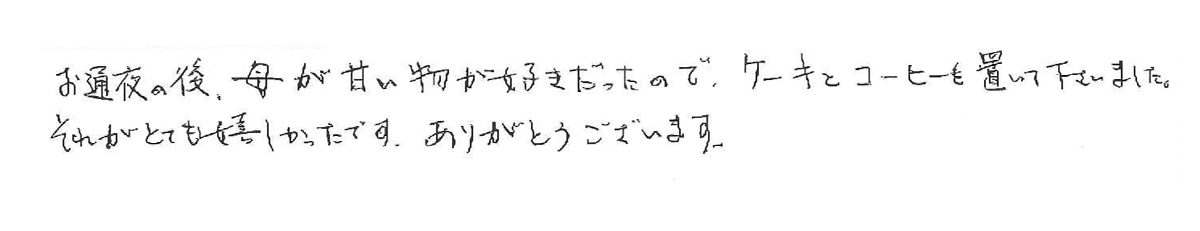 お通夜の後、母が甘い物が好きだったので、ケーキとコーヒーを置いて下さいました。
それがとても嬉しかったです。ありがとうございます。